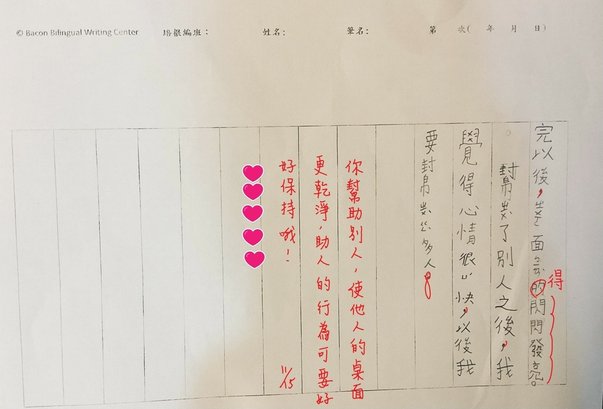 © Bacon Bilingual Writing Center 培根編班： 姓名： 筆名： 第 次( 年 月 日)
完以後，面的閃閃發亮。
得
幫了別人之後，我
覺得心情很快，以後我
要幫多人。
你幫助別人，使他人的桌面
更乾淨，助人的行為可要好
好保持哦！ 11/15